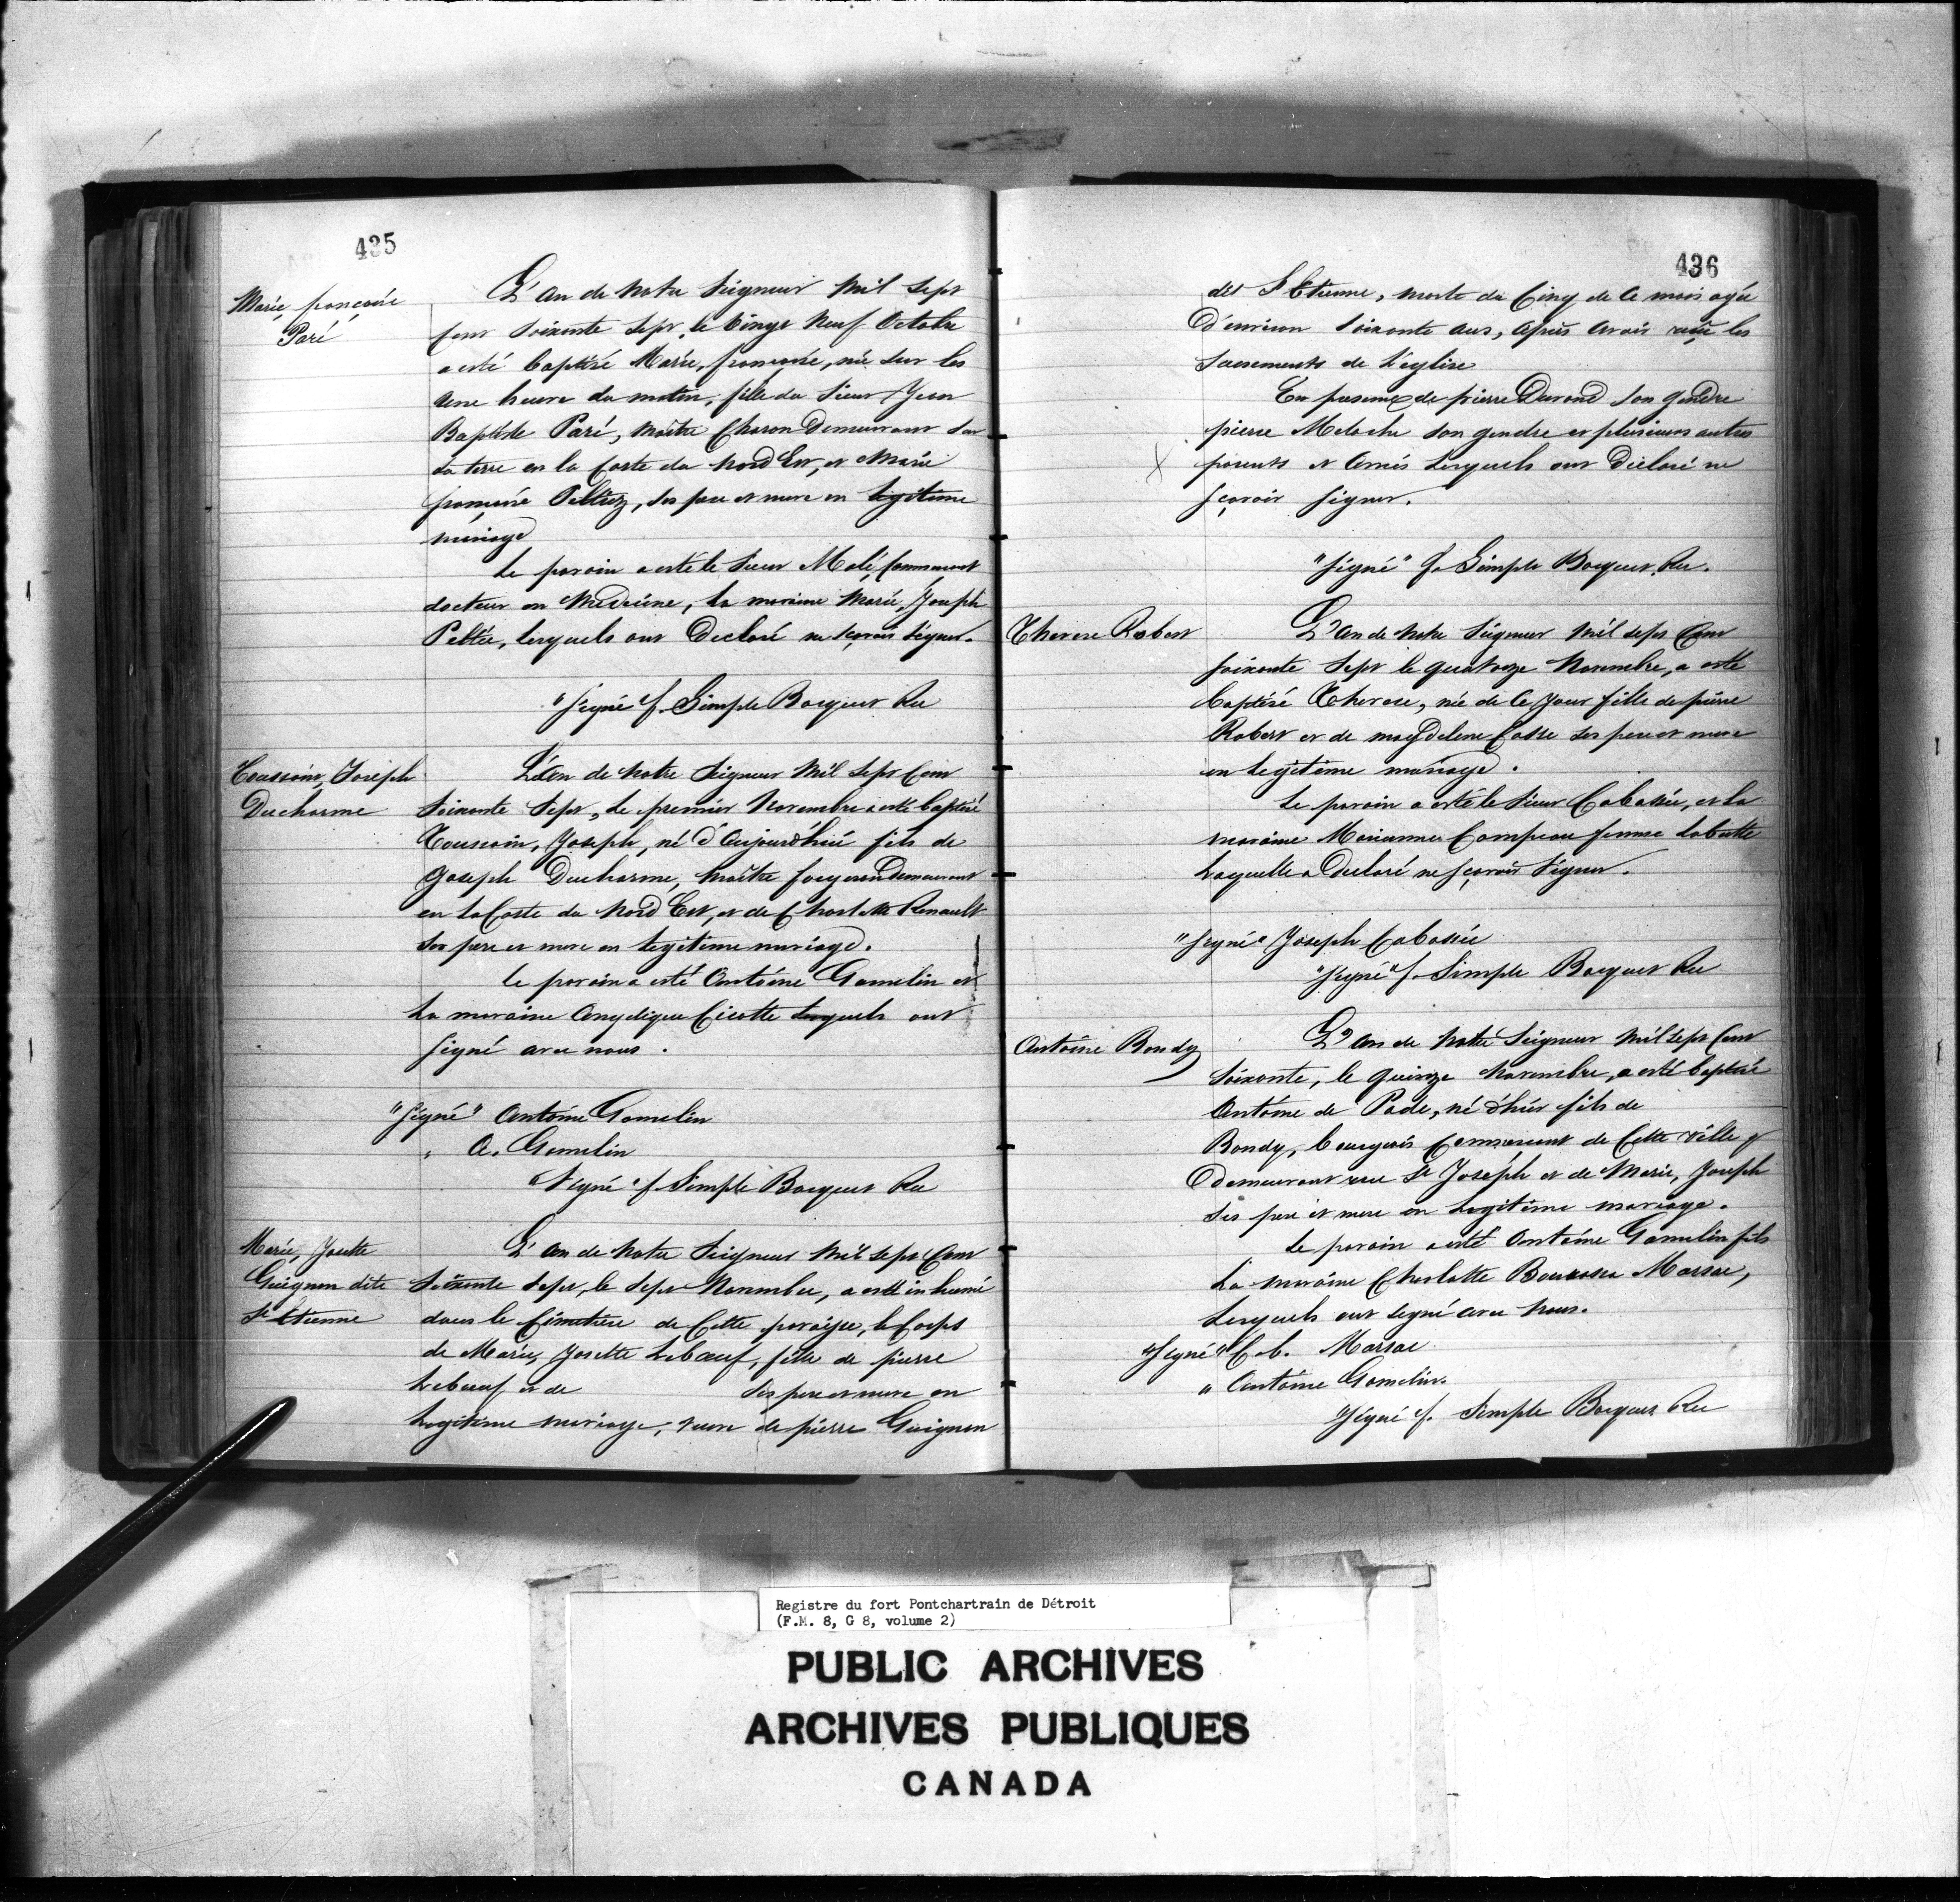 435
Marie françoise
Paré
L'an de Notre Seigneur Mil Sept
Cent Soixante Sept, le Vingt Neuf Octobre
a esté baptisé Marie, françoise, née sur les
une heure du matin, fille du Sieur Jean
Baptiste Paré, Maître Charon Demeurant sur
sa terre en la Coste du Nord Est, et Marie
françoise Peltiez, ses pere et mere en legitime
mariage
Le parain a esté le Sieur
docteur en Medecine, la maraine Marie, Joseph
Peltie, lesquels ont Declaré ne sçavoir signer.
"Signé f. Simple Bocquet Rec
Toussain, Joseph
Ducharme
L'an de Notre Seigneur Mil Sept Cent
Soixante Sept, le premier Novembre a esté baptisé
Toussain, Joseph, né d'Aujourd'hui fils de
Joseph Ducharme, Maître forgeron Demeurant
en la Coste du Nord Est, et de Charlotte Renault
ses pere et mere en legitime mariage.
le parain a esté Antoine Gamelin et
La maraine Angelique Cicotte lesquels ont
signé avec nous.
"Signé" Antoine Gamelin
" A. Gamelin
"Signé" f. Simple Bocquet Rec
Marie, Josette
Guignon dite
St Etienne
L'an de Notre Seigneur Mil Sept Cent
Soixante Sept, le Sept Novembre, a esté inhumé
dans le Cimetiere de Cette paroisse, le Corps
de Marie, Josette Lebœuf, fille de pierre
Lebœuf et de ses pere et mere en
Legitime mariage, veuve de pierre Guignon
436
dit St Etienne, morte du Cinq de Ce mois agée
D'environ Soixante ans, après avoir reçu les
Sacrements de l'église
En presence de pierre Durand son gendre
pierre Meloche son gendre et plusieurs autres
parents et Amis lesquels ont Déclaré ne
sçavoir signer.
"Signé" f. Simple Bocquet, Rec.
Therese Robert
L'an de Notre Seigneur Mil sept Cent
soixante Sept le quatorze Novembre, a esté
baptisé Therese, née de Ce Jour fille de pierre
Robert et de magdelene Casse ses pere et mere
en legitime mariage.
Le parain a esté le Sieur Cabassié, et la
maraine Marianne Campeau femme Labutte
Laquelle a Declaré ne sçavoir Signer.
"Signé" Joseph Cabassié
"Signé" f. Simple Bocquet Rec
Antoine Bondy
L'an de Notre Seigneur Mil sept Cent
Soixante, le quinze Novembre, a esté baptisé
Antoine de Pade, né d'hier fils de
Bondy, bourgeois Commercant de Cette ville
demeurant rue St Joseph et de Marie, Joseph
ses pere et mere en legitime mariage.
Le parain a esté Antoine Gamelin fils
La maraine Charlotte Bourassa Marsac,
Lesquels ont signé avec Nous.
"Signé" C. b. Marsac
" Antoine Gamelin.
"Signé" f. Simple Bocquet Rec
Registre du fort Pontchartrain de Détroit
(F.M. 8, G 8, volume 2)
PUBLIC ARCHIVES
ARCHIVES PUBLIQUES
CANADA